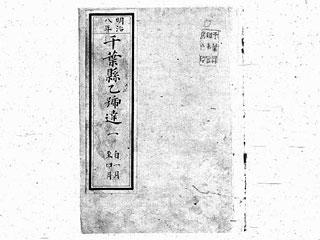 明治
八年
千葉縣乙號達 一
自一月
至四月